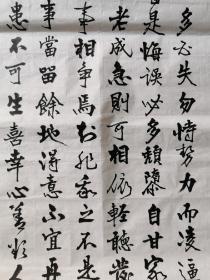 多必失勿恃勢力而凌逼
是悔誤必多頹隳自甘家
老成急則可相依輕聽發
事相爭焉知非我之不是
事當留餘地得意不宜再
患不可生喜幸心善欲人